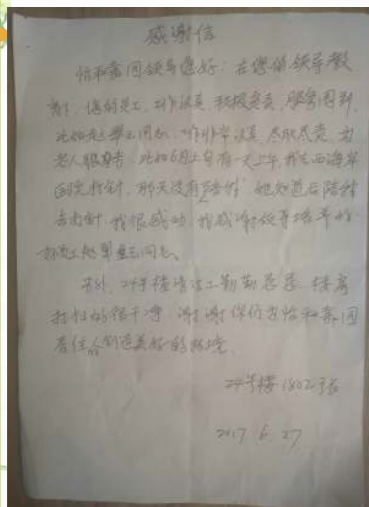 感谢信
怡和家园领导您好：在您的领导教
育下，您的员工，工作认真，积极负责，服务周到，
比如赵攀玉同志，工作非常认真，尽职尽责，为
老人服务，比如6月上旬有一天上午，我去西海岸
医院打针，那天没有陪伴，她知道后陪我
去打针，我很感动，我感谢领导培养的
好员工赵攀玉同志。
另外，24号楼清洁工勤勤恳恳，楼房
打扫的很干净，谢谢你们为怡和家园
居住人创造美好的环境。
24号楼1802张
2017 6 27